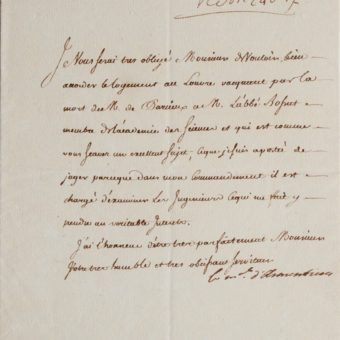 Je vous serai tres obligé Monsieur de Vouloir bien
accorder le logement au Louvre vacquent par la
mort de M. de à M. L'abbé Bossut
membre de l'académie des sciences et qui est comme
vous savez un excellent sujet, ce que je suis aportée de
juger parceque dans mon Commandement il est
chargé d'examiner Les Ingenieurs ce qui me fait y
prendre un veritable Interest.
J'ai l'honneur d'être tres parfaitement Monsieur
Votre tres humble et tres obeissant serviteur